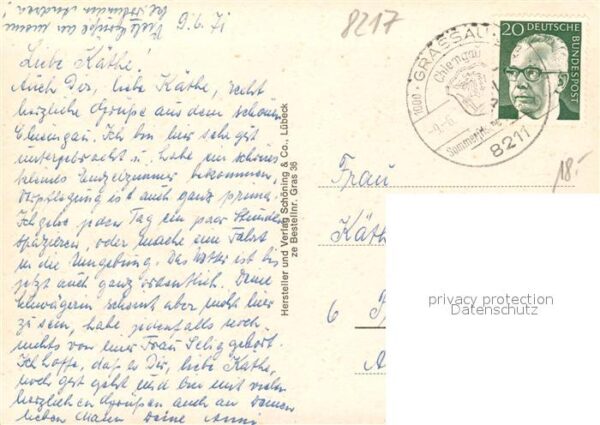 9.6.71
Liebe Käthe!
Auch Dir, liebe Käthe, recht
herzliche Grüße aus dem schönen
Chiemgau. Ich bin hier sehr gut
untergebracht u. habe ein schönes
kleines Einzelzimmer bekommen,
Verpflegung ist auch ganz prima.
Ich gehe jeden Tag ein paar Stunden
spazieren, oder mache eine Fahrt
in die Umgebung. Das Wetter ist bis
jetzt auch ganz ordentlich. Deine
Schwägerin scheint aber nicht hier
zu sein, habe jedenfalls noch
nichts von einer Frau gehört.
Ich hoffe, daß es Dir, liebe Käthe,
noch gut geht und bin mit vielen
herzlichen Grüßen auch an Deinen
lieben Mann Deine Anni
Hersteller und Verlag Schöning & Co., Lübeck
ze Bestellnr. Gras 36
8217
GRASSAU
Chiemgau
8211
20 DEUTSCHE
BUNDESPOST
18.-
Frau
Käthe
6
privacy protection
Datenschutz